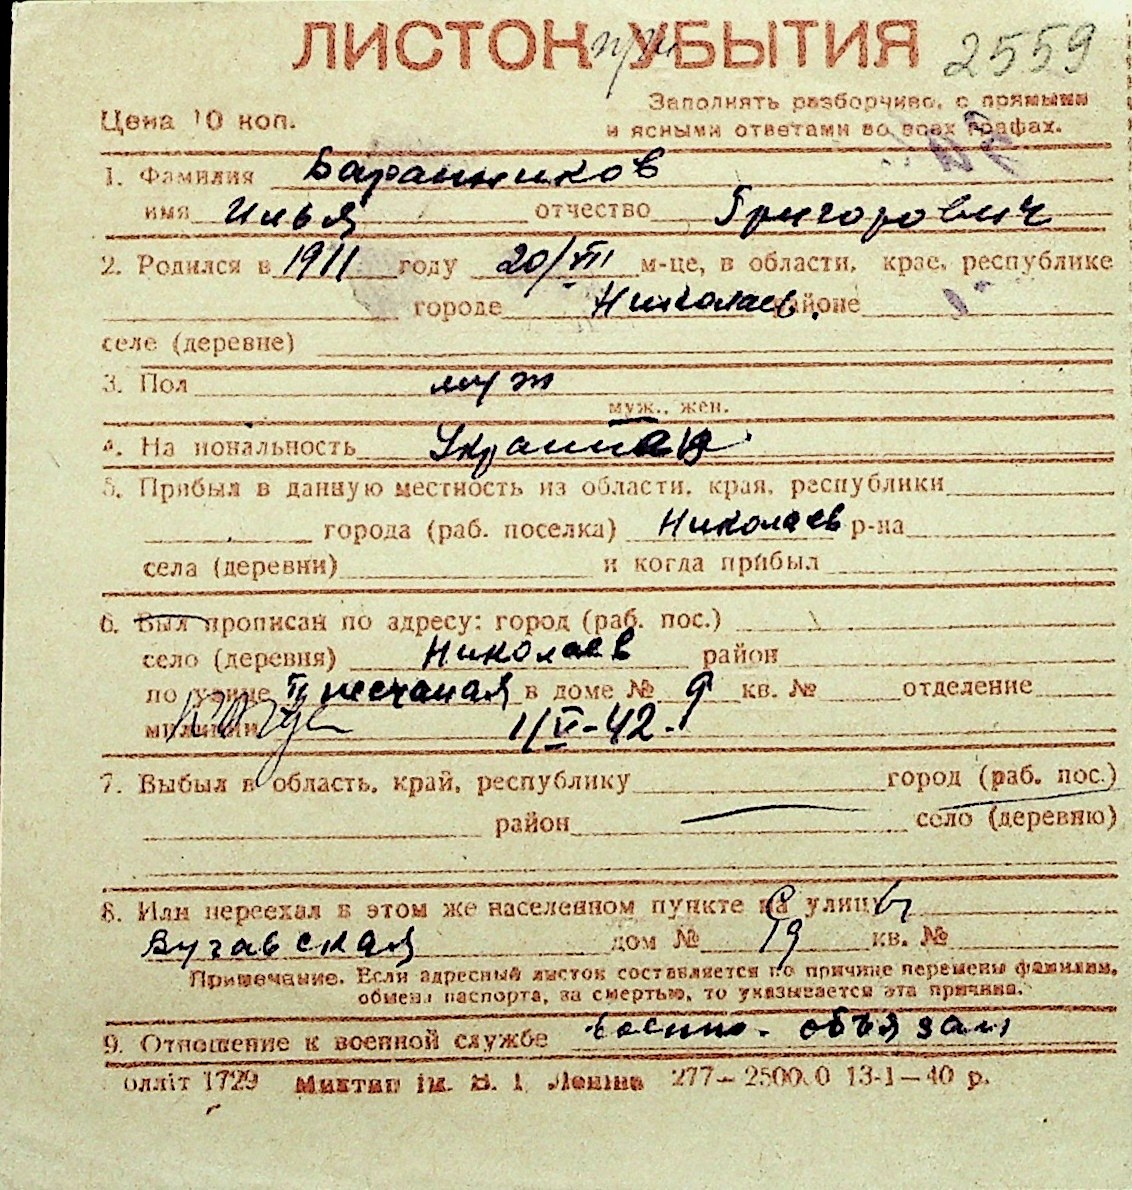 ЛИСТОК УБЫТИЯ 2559
Цена 10 коп.
Заполнять разборчиво, с прямыми
и ясными ответами во всех графах.
1. Фамилия Баранников
имя Илья отчество Григорович
2. Родился в 1911 году 20/VII м-це, в области, крае, республике
городе Николаев. районе
селе (деревне)
3. Пол муж
муж., жен.
4. Национальность Украинец
5. Прибыл в данную местность из области, края, республики
города (раб. поселка) Николаев р-на
села (деревни) и когда прибыл
6. Был прописан по адресу: город (раб. пос.)
село (деревня) Николаев район
по улице песчаная в доме № 9 кв. № отделение
милиции 1/V-42.
7. Выбыл в область, край, республику город (раб. пос.)
район село (деревню)
8. Или переехал в этом же населенном пункте на улицу
дом № 19 кв. №
Примечание. Если адресный листок составляется по причине перемены фамилии,
обмена паспорта, за смертью, то указывается эта причина.
9. Отношение к военной службе военно-обязан
1729 ім. В. І. Леніна 277— 13-1—40 р.